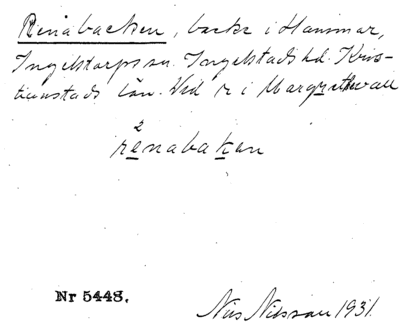 Renabacken, backe i Hammar,
Ingelstorps sn. Ingelstads hd. Kris-
tianstads län. Vid r i Margretevall
2
renabaken
Nr 5448.
Nils Nilsson 1931.